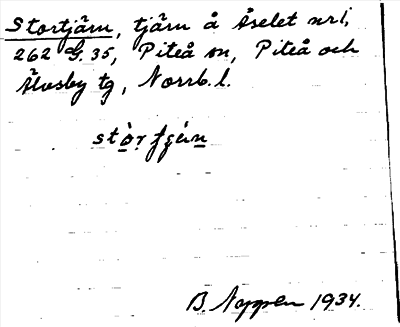 Stortjärn, tjärn å Åselet nr 1,
262 G. 35, Piteå sn, Piteå och
Älvsby tg, Norrb. l.
B. 1934.